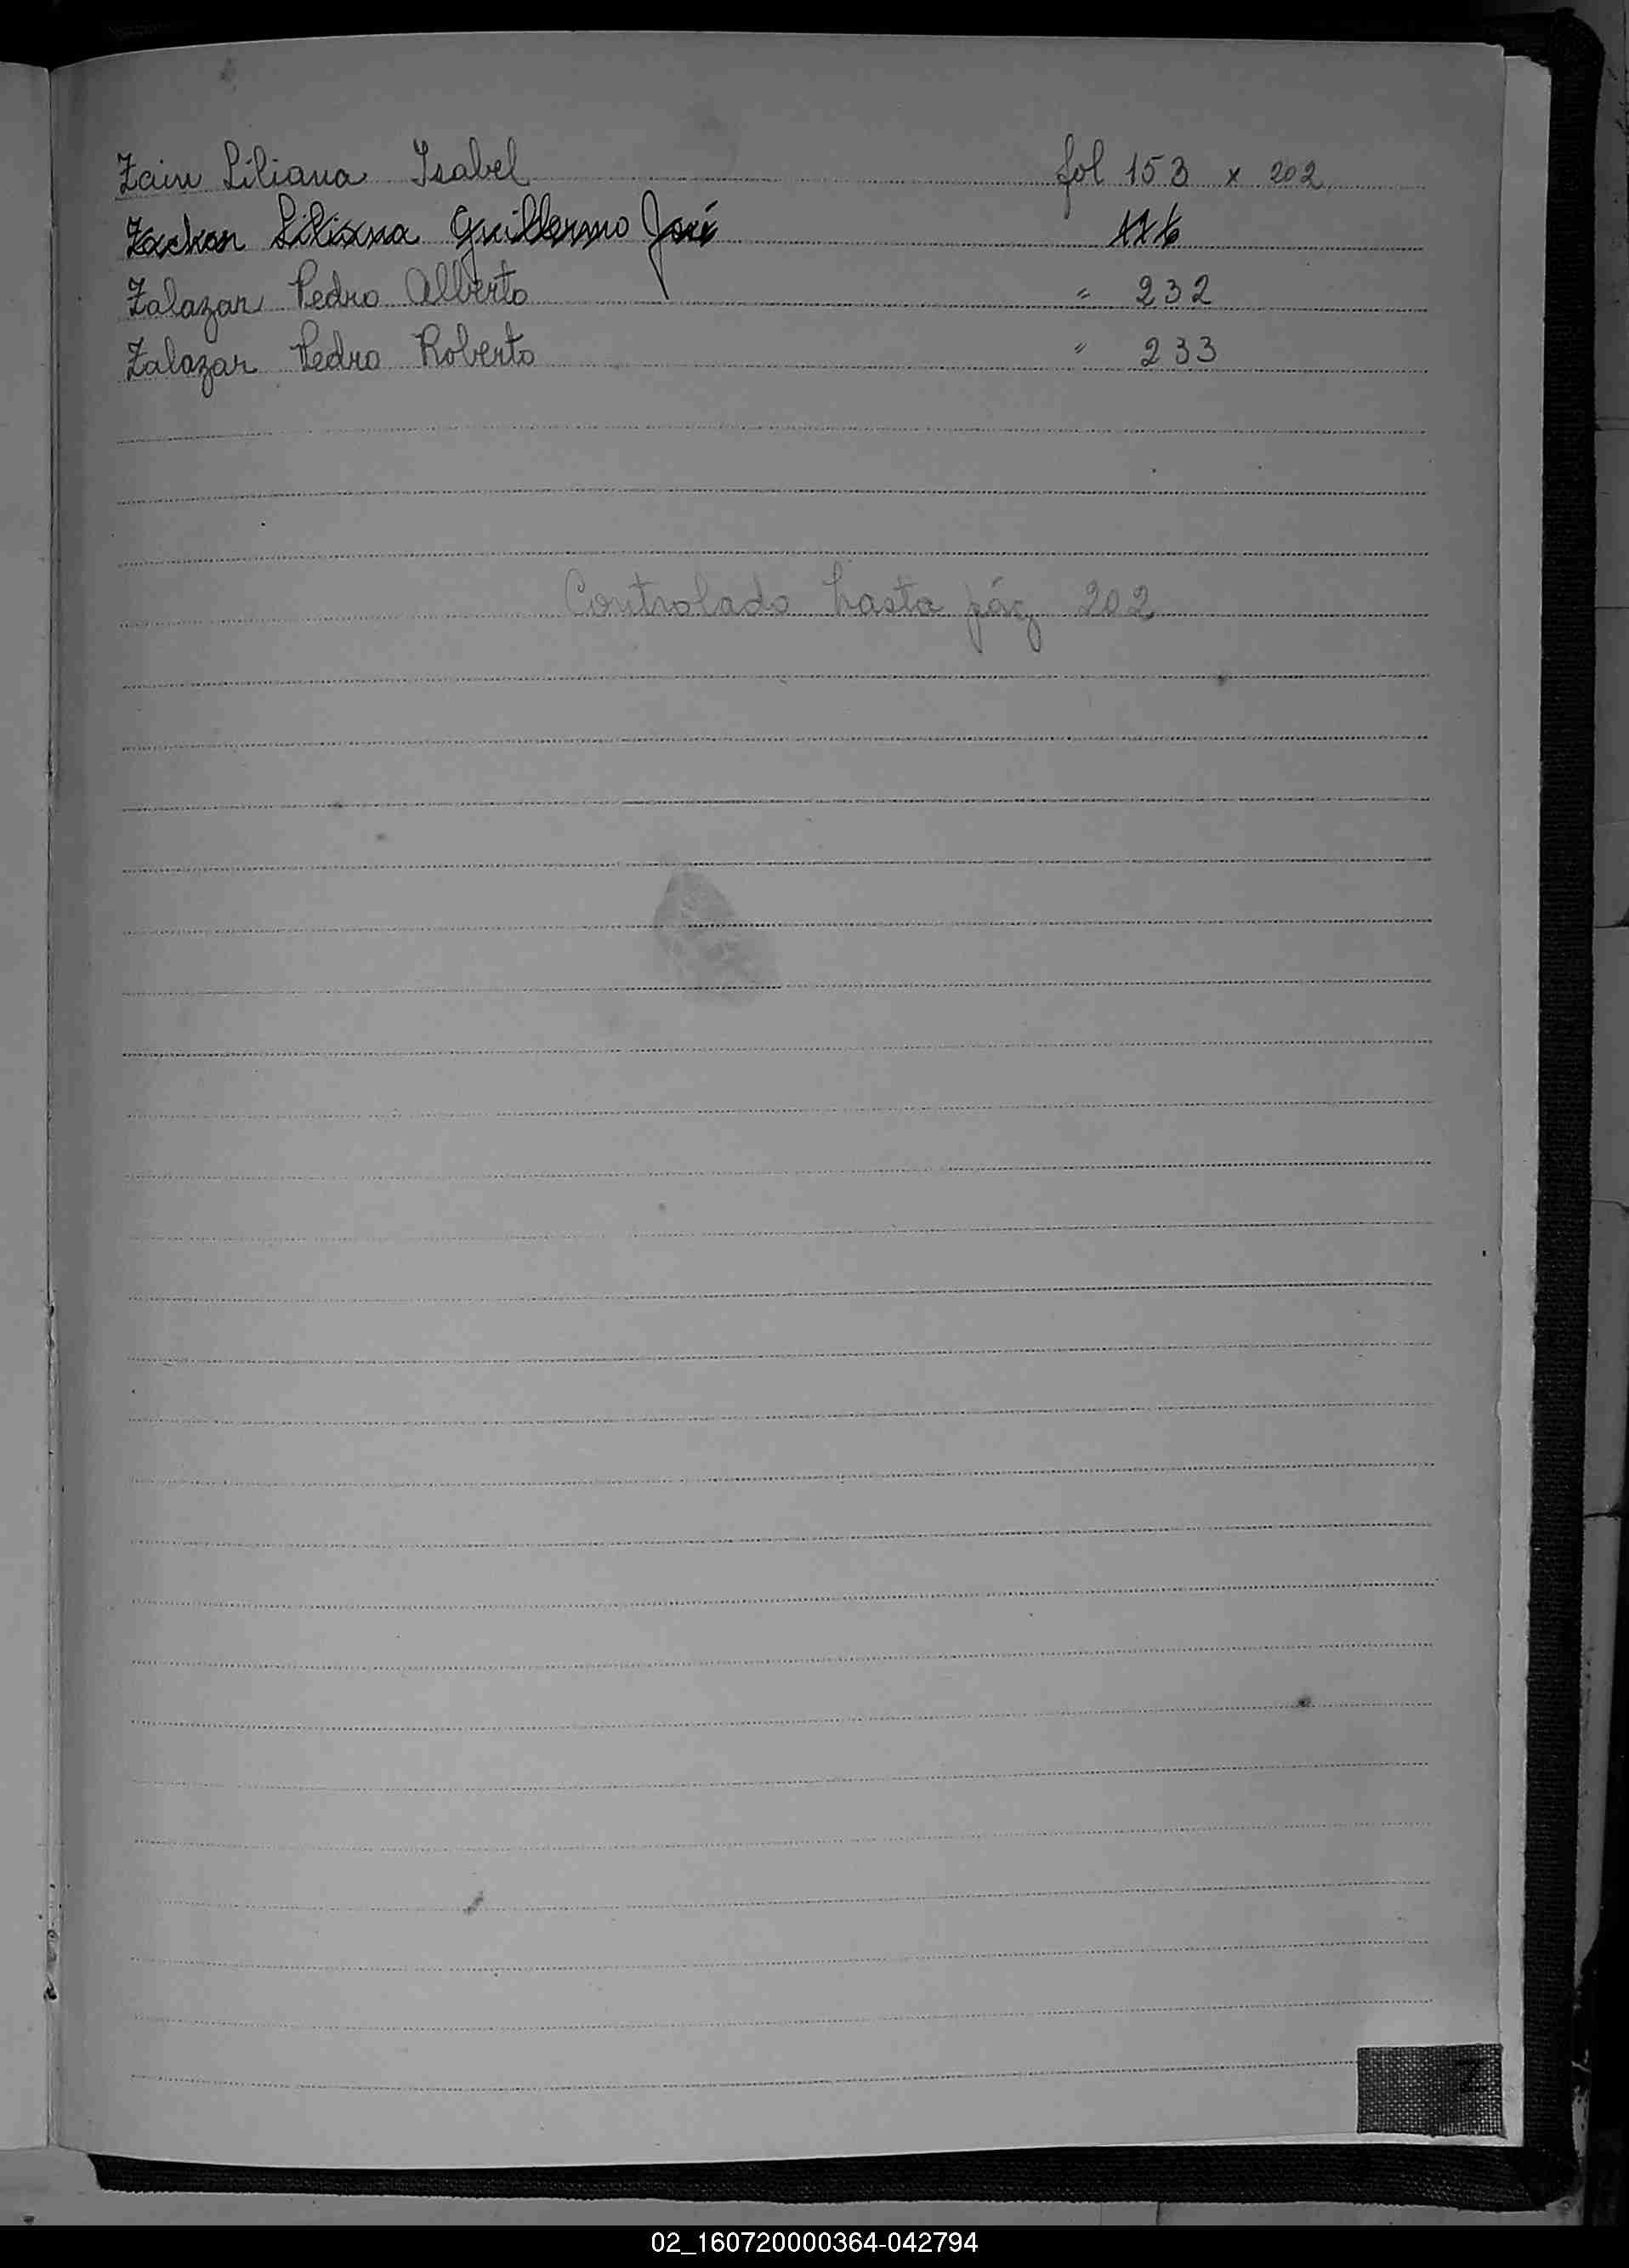 Zain Liliana Isabel fol 153 x 202
Liliana Guillermo José
Zalazar Pedro Alberto " 232
Zalazar Pedro Roberto " 233
Controlado hasta pág 202
Z
02_160720000364-042794